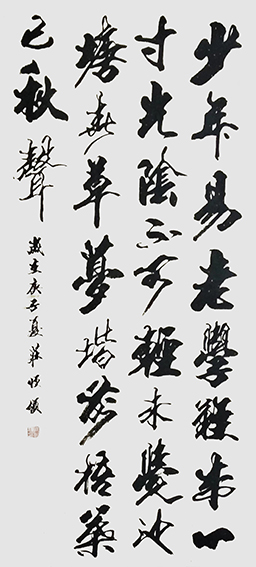 少年易老學難成一
寸光陰不可輕未覺池
塘春草夢堦前梧葉
已秋聲
歲在庚子夏